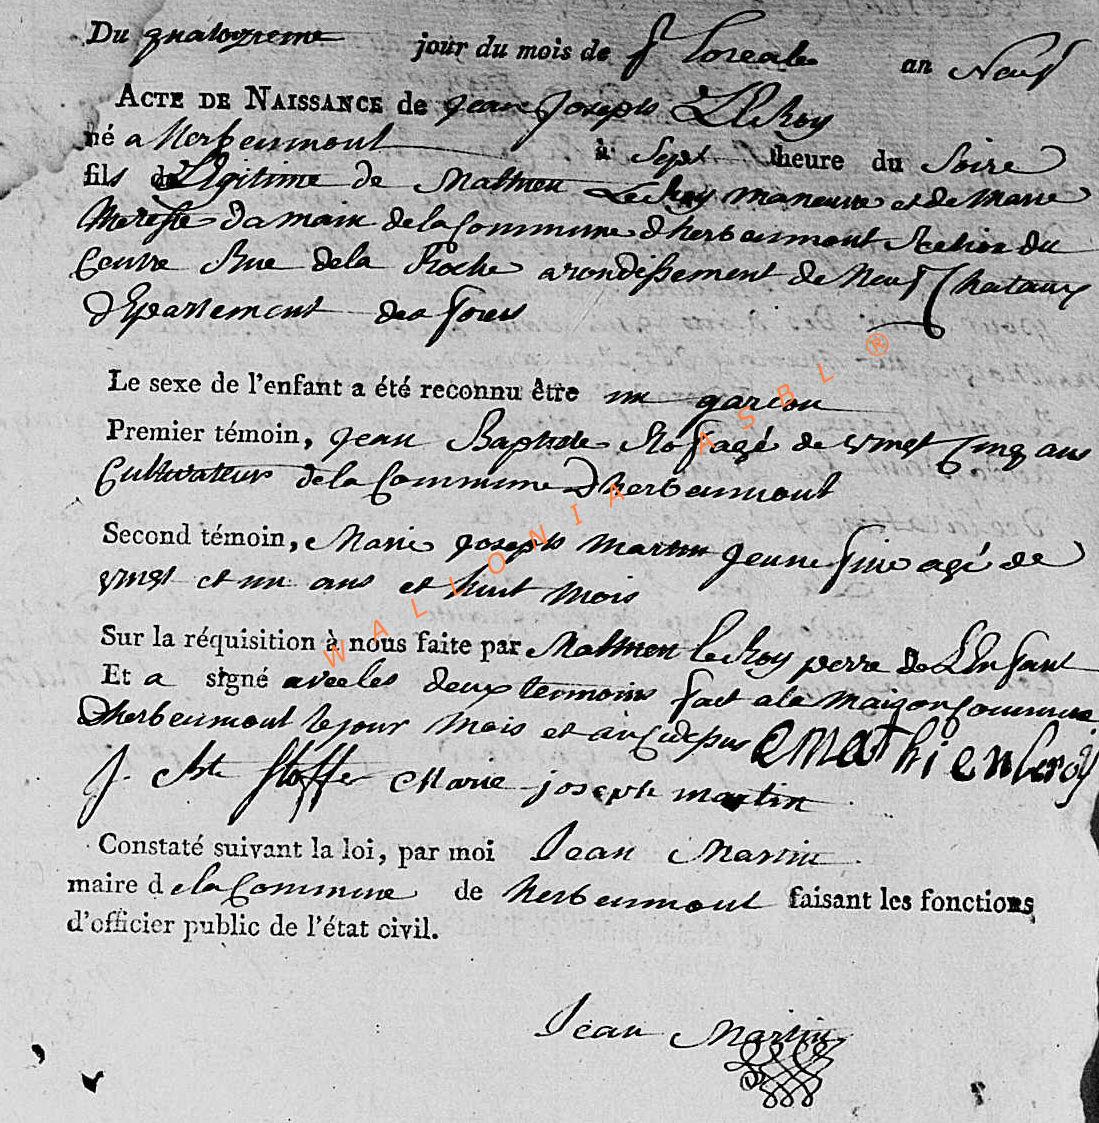 Du quatorzieme jour du mois de floreale an Neuf
ACTE DE NAISSANCE de jean joseph LeRoy
né a herbeumont à Sept heure du Soire
fils de Legitime de Mathieu LeRoy maneuvre et de Marie
therese damain de la Commune dherbeumont Section du
Centre Rue dela Roche arondissement de Neuf Chataux
departement des forest
Le sexe de l'enfant a été reconnu être un garcon
Premier témoin, jean Baptiste agé de vingt Cinq ans
Cultivateur dela Commune Dherbeumont
Second témoin, Marie joseph Martin jeune fille agé de
vingt et un ans et huit mois
Sur la réquisition à nous faite par Mathieu leRoy perre de LEnfant
Et a signé avec les deux temoins fait ala Maison Commune
Dherbeumont le jour Mois et an que
Mathieu Leroy
J. Bte Stoffe Marie joseph martin
Constaté suivant la loi, par moi Jean Martin
maire dela Commune de herbeumont faisant les fonctions
d'officier public de l'état civil.
Jean Martin
WALLONIA ASBL ®